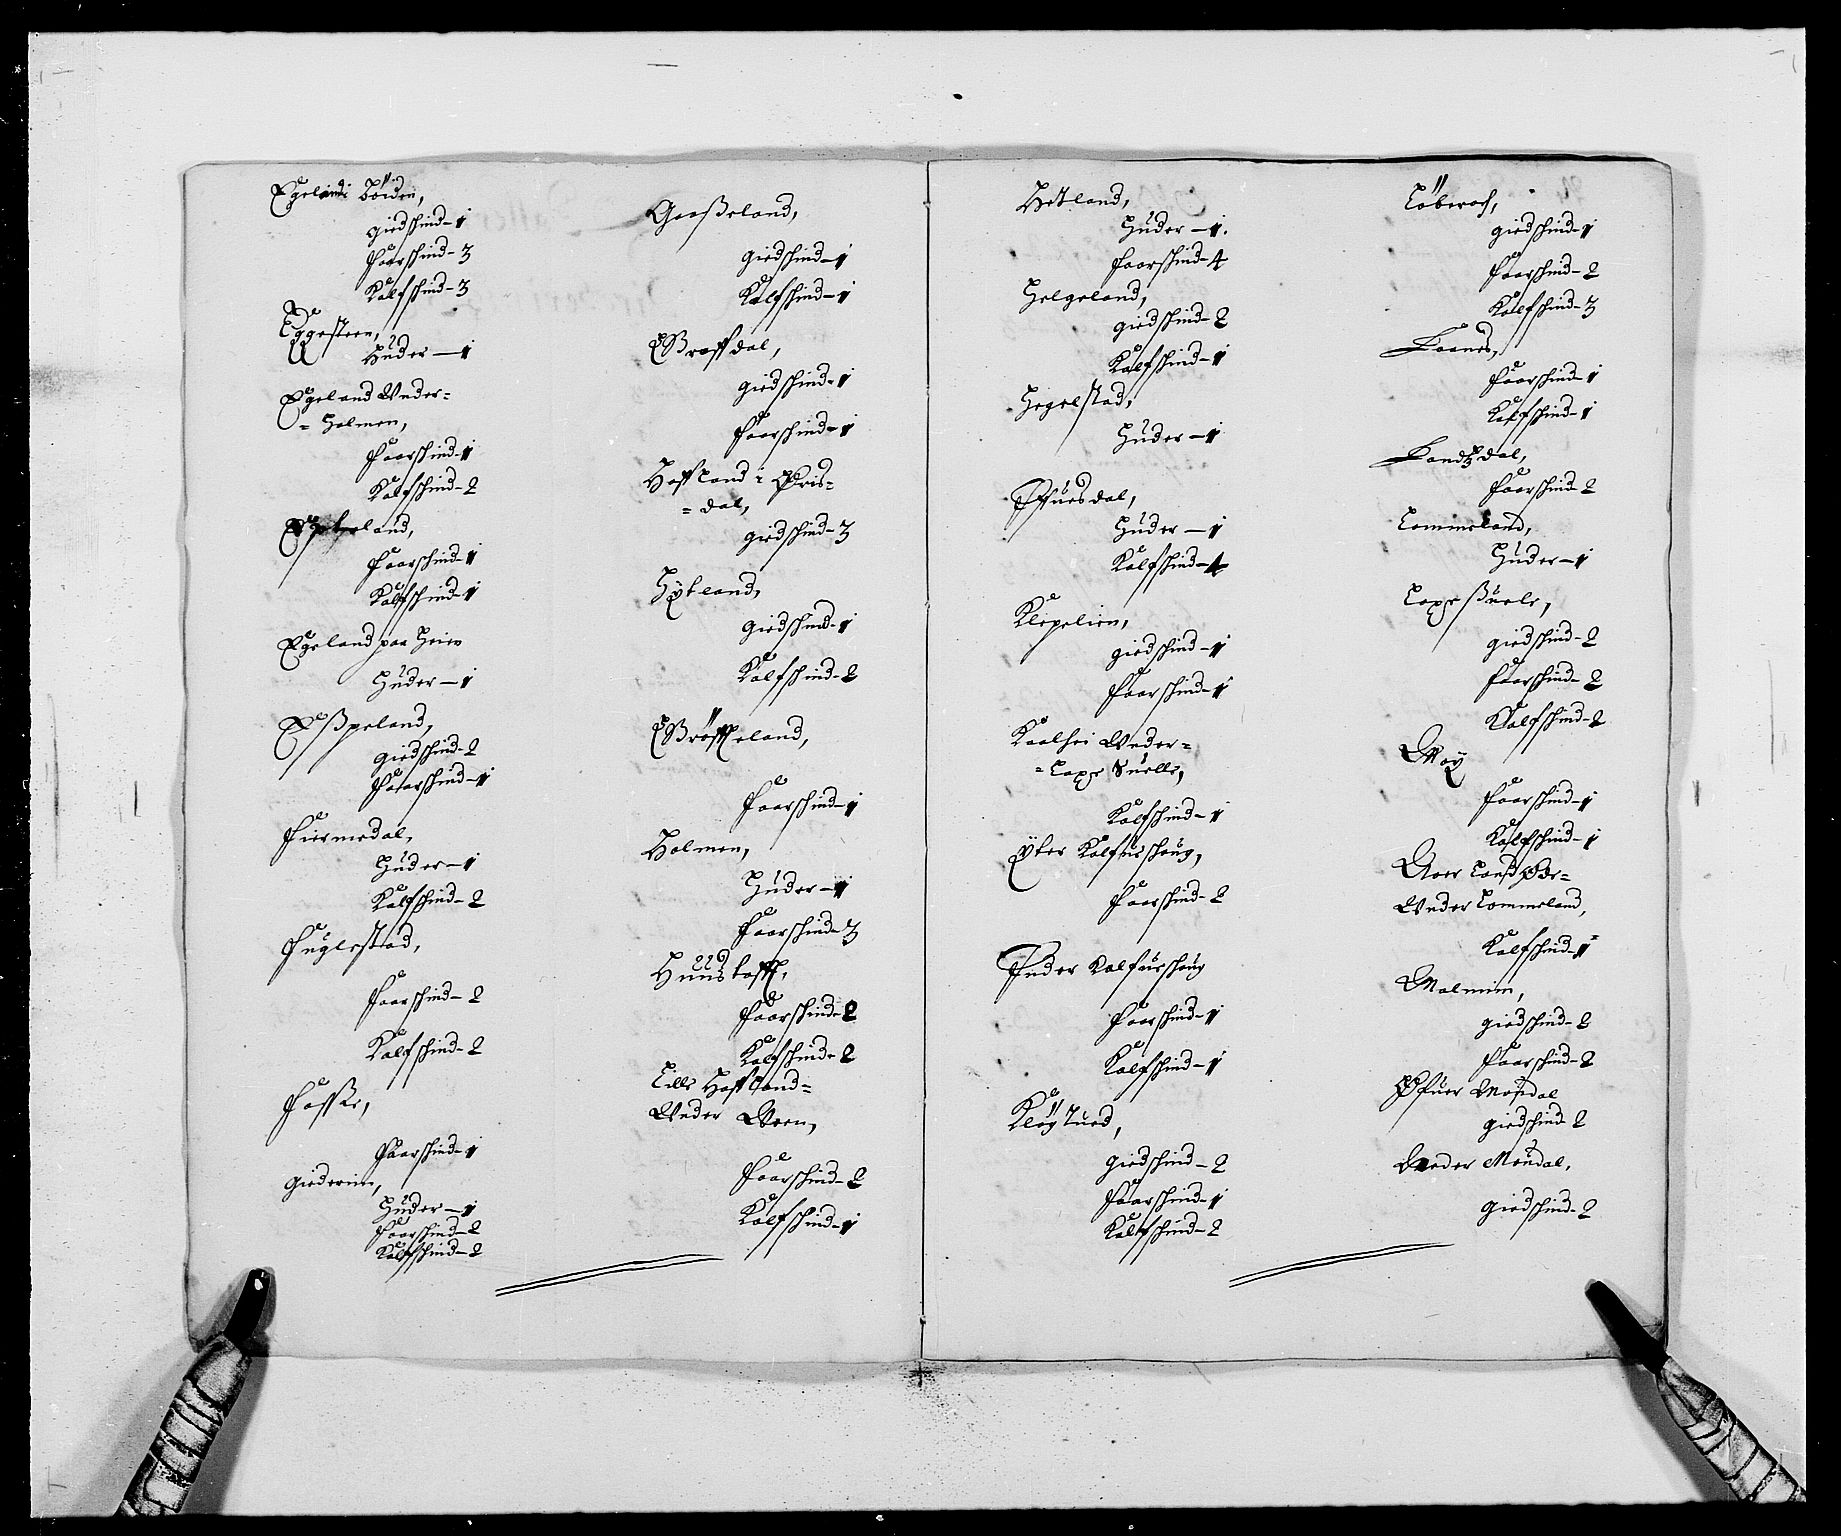 Egelandi Börden,
giedschind - 1
faarschind - 3
Kalfschind - 3
Eggesteen,
Huder - 1
Egeland Vnder=
= Holmen,
faarschind - 1
Kalfschind - 2
faarschind - 1
Kalfschind - 1
Egeland paa Heien
Huder - 1
Eßpeland,
giedschind - 2
faarschind - 1
Fiermedal,
Huder - 1
Kalfschind - 2
Fuglestad,
faarschind - 2
Kalfschind - 2
Foßse,
faarschind - 1
giederim,
Huder - 1
faarschind - 2
Kalfschind - 2
Gaaßeland,
giedschind - 1
Kalfschind - 1
Graffdal,
giedschind - 1
faarschind - 1
Haffland i Øris=
= dal,
giedschind - 3
Hÿtland,
giedschind - 1
Kalfschind - 2
Gröffleland,
faarschind - 1
Holmen,
Huder - 1
faarschind - 3
Huustofft,
faarschind - 2
Kalfschind - 2
Lille Haffland=
Vnder Veen,
faarschind - 2
Kalfschind - 1
Hetland,
Huder - 1.
faarschind - 4
Helgeland,
giedschind - 2
Kalfschind - 1
Hegelstad,
Huder - 1
Ifuesdal,
Huder - 1
Kalfschind - 4
Klepelien,
giedschind - 1
faarschind - 1
Kaalhei Vnder=
= Laxe Suelle,
Kalfschind - 1
Ÿter Kalfuishoug,
faarschind - 2
Inder Kalfuishoug
faarschind - 1
Kalfschind - 1
Kløgtued,
giedschind - 2
faarschind - 1
Kalfschind - 2
giedschind - 1
faarschind - 2
Kalfschind - 3
Laanes,
faarschind - 1
Kalfschind - 1
Landzdal,
faarschind - 2
Lommeland,
Huder - 1
Laxe ßuele,
giedschind - 2
faarschind - 2
Kalfschind - 2
Moÿ
faarschind - 1
Kalfschind - 1
Vnder Lommeland,
Kalfschind - 1
Malmim,
giedschind - 2
faarschind - 2
Øfuer Mondal
giedschind 2
Neder Mondal,
giedschind - 2